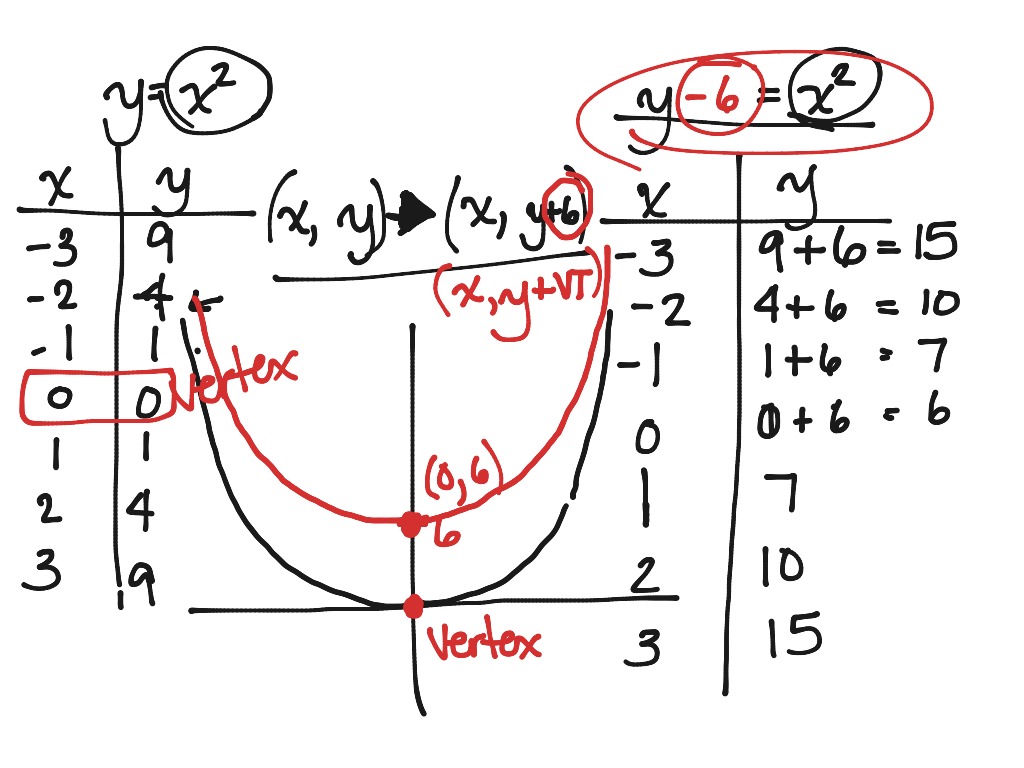 y = x²
x y
-3 9
-2 4
-1 1
0 0 vertex
1 1
2 4
3 9
(x, y) → (x, y+6)
(x, y+VT)
(0, 6)
6
vertex
y - 6 = x²
x y
-3 9+6 = 15
-2 4+6 = 10
-1 1+6 = 7
0 0+6 = 6
1 7
2 10
3 15